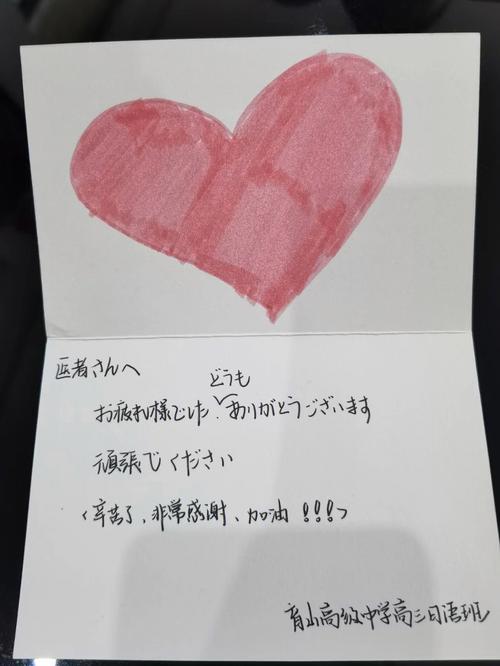 医者さんへ
どうも
お疲れ様でした.ありがとうございます
頑張でください
<辛苦了、非常感谢、加油!!!>
育山高级中学高三日语班